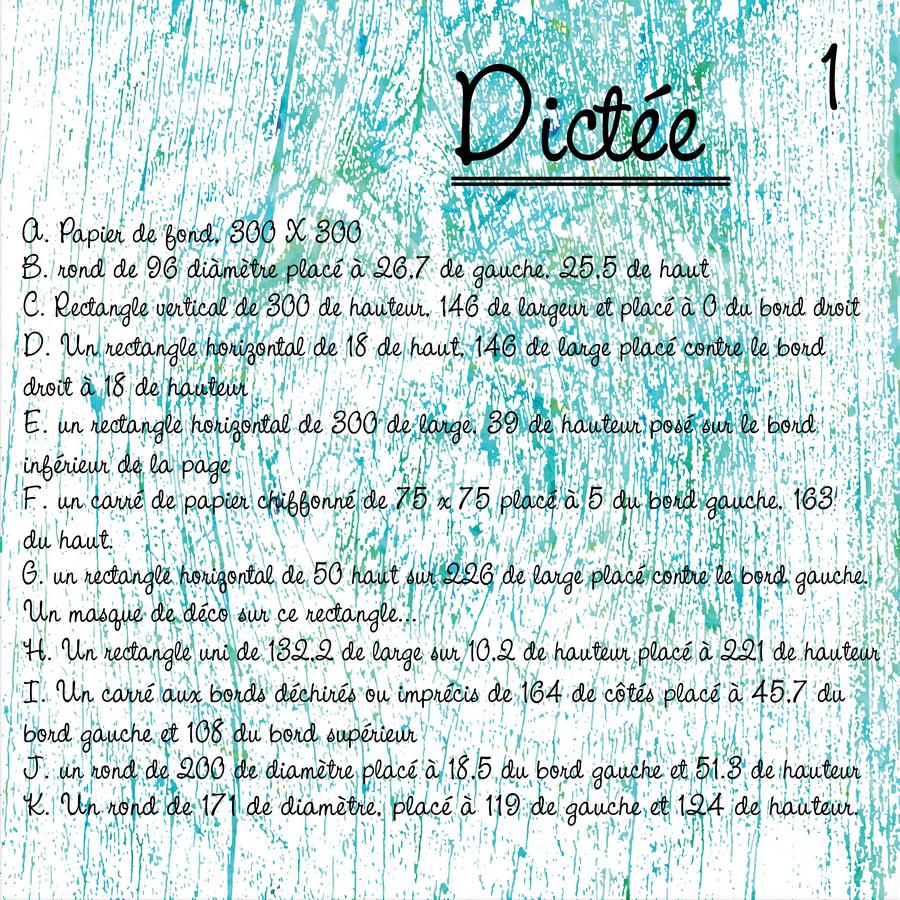 1
Dictée
A. Papier de fond, 300 X 300
B. rond de 96 diàmètre placé à 26,7 de gauche, 25.5 de haut
C. Rectangle vertical de 300 de hauteur, 146 de largeur et placé à 0 du bord droit
D. Un rectangle horizontal de 18 de haut, 146 de large placé contre le bord
droit à 18 de hauteur
E. un rectangle horizontal de 300 de large, 39 de hauteur posé sur le bord
inférieur de la page
F. un carré de papier chiffonné de 75 x 75 placé à 5 du bord gauche, 163
du haut.
G. un rectangle horizontal de 50 haut sur 226 de large placé contre le bord gauche.
Un masque de déco sur ce rectangle...
H. Un rectangle uni de 132,2 de large sur 10,2 de hauteur placé à 221 de hauteur
I. Un carré aux bords déchirés ou imprécis de 164 de côtés placé à 45,7 du
bord gauche et 108 du bord supérieur
J. un rond de 200 de diamètre placé à 18,5 du bord gauche et 51.3 de hauteur
K. Un rond de 171 de diamètre, placé à 119 de gauche et 124 de hauteur.